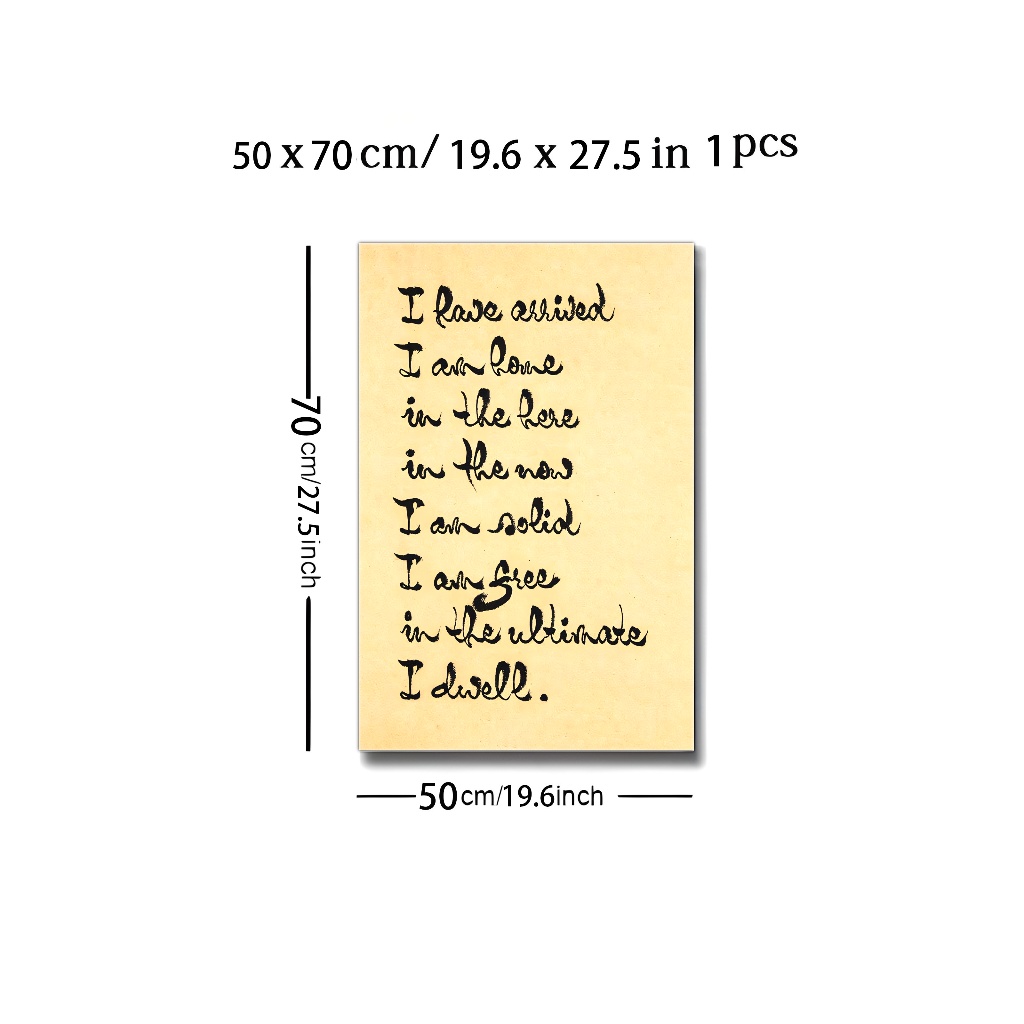 50 x 70 cm/ 19.6 x 27.5 in 1 pcs
I have arrived
I am home
in the here
in the now
I am solid
I am free
in the ultimate
I dwell.
70 cm/27.5inch
50cm/19.6inch